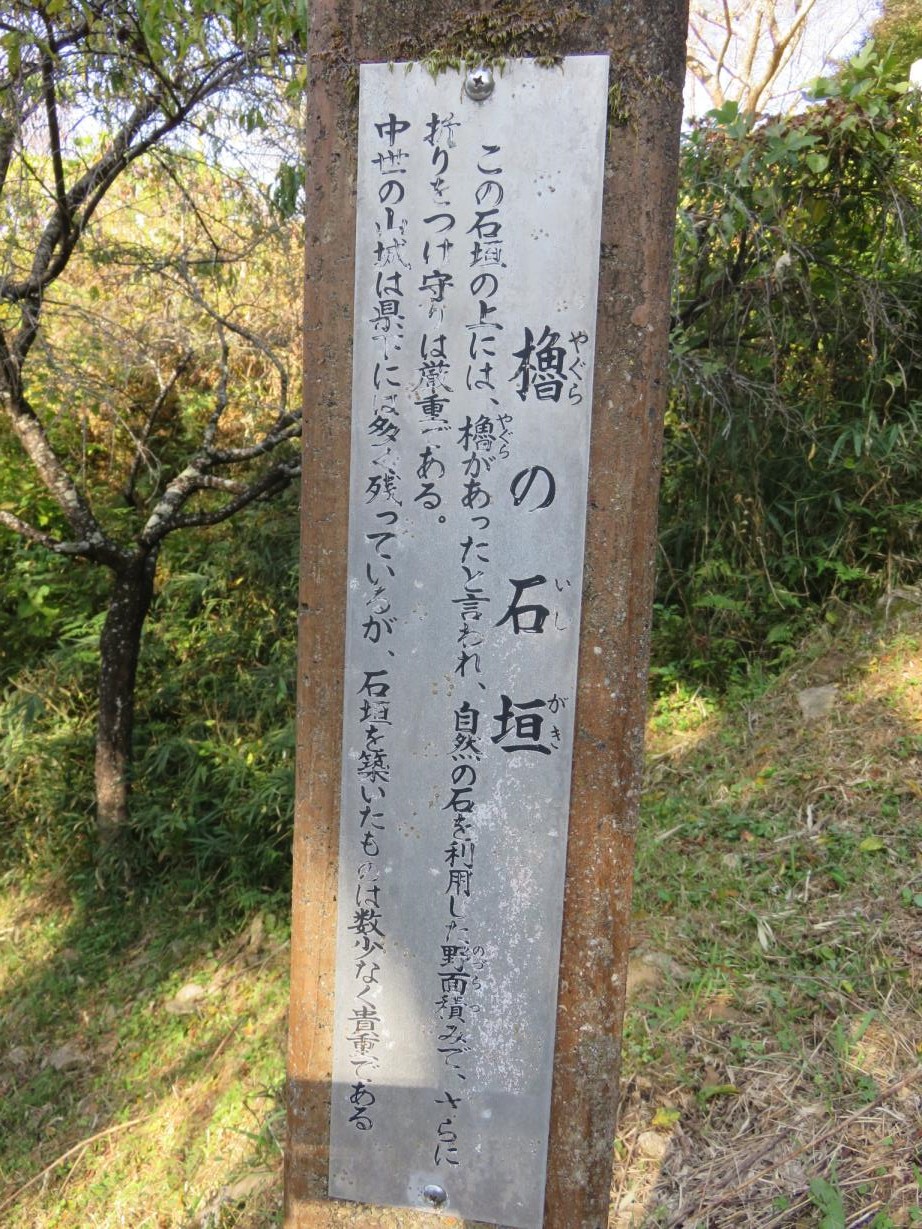 やぐら いし がき
櫓の石垣
やぐら
この石垣の上には、櫓があったと言われ、自然の石を利用した野面積みで、さらに
折りをつけ守りは厳重である。
中世の山城は県下には多く残っているが、石垣を築いたものは数少なく貴重である